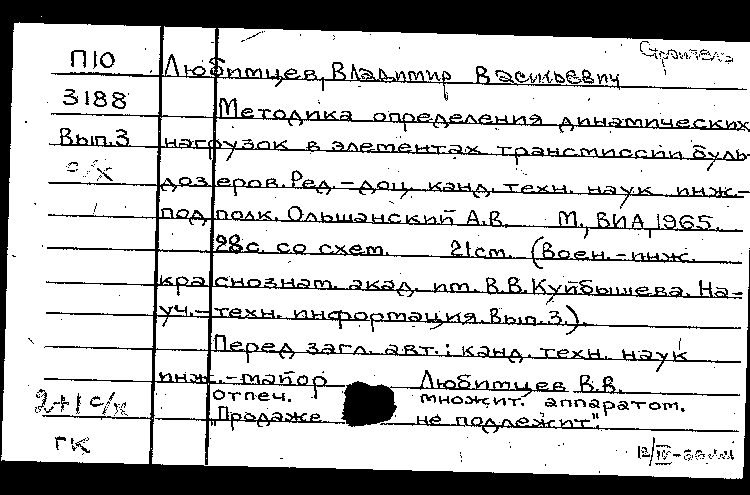 Строитель
П10 Любимцев, Владимир Васильевич
3188 Методика определения динамических
Вып.3 нагрузок в элементах трансмиссии буль-
с/х дозеров. Ред.-доц. канд. техн. наук инж-
подполк. Ольшанский А.В. М., ВИА, 1965.
28с. со схем. 21см. (Воен.-инж.
краснознам. акад. им. В.В. Куйбышева. На-
уч.-техн. информация. Вып. 3.).
Перед загл. авт.: канд. техн. наук
инж.-майор Любимцев В.В.
2+1 с/х отпеч. множит. аппаратом.
"Продаже не подлежит".
ГК